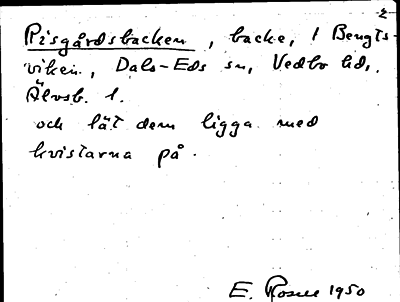 2
Risgårdsbacken, backe, i Bengts-
viken, Dals-Eds sn, Vedbo hd,
Älvsb. l.
och lät dem ligga med
kvistarna på.
E. Rosell 1950